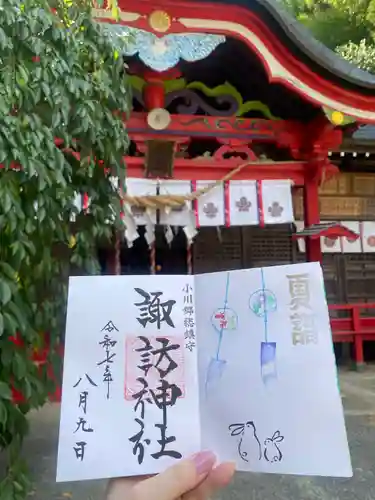 小川郷総鎮守
諏訪神社
令和七年
八月九日
夏詣